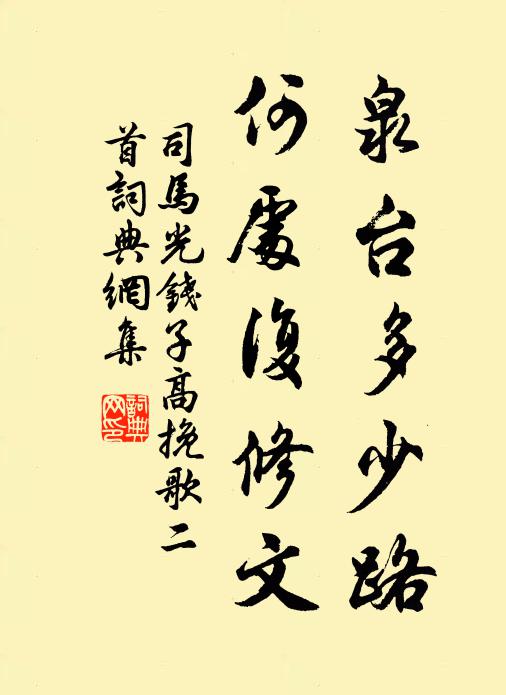 泉台多少路
何處復修文
司馬光錢子高挽歌二
首詞典網集
詞典
網印